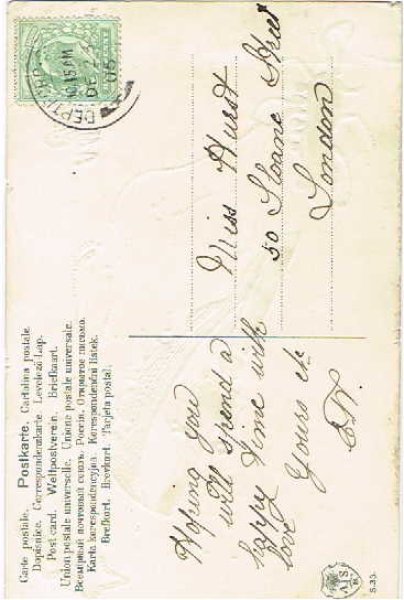 Carte postale. Postkarte. Cartolina postale.
Dopisnice. Correspondenzkarte. Levelező-Lap.
Post card. Weltpostverein. Briefkaart.
Union postale universelle. Unione postale universale.
Всемірный почтовый союзъ. Россія. Открытое письмо.
Karta korespondencyjna. Korespondenční lístek.
Brefkort. Brevkort. Tarjeta postal.
DEPTFORD
10.15 AM
DE
05
Hoping you
will spend a
happy time with
love Yours etc
Miss Hurst
50 Sloane Street
London
S.33.